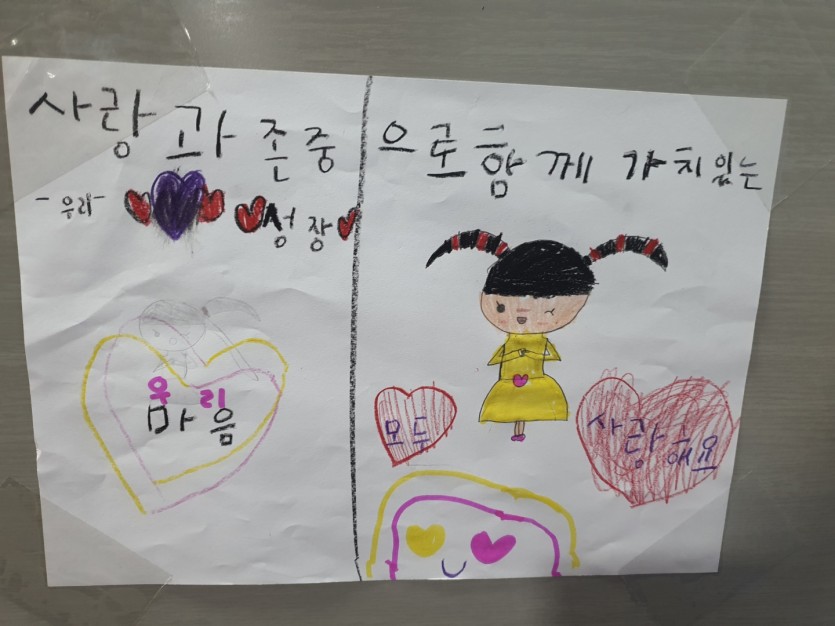 사랑과 존중으로 함께 가치있는
-우리- 성장
우리
마음
모두
사랑해요